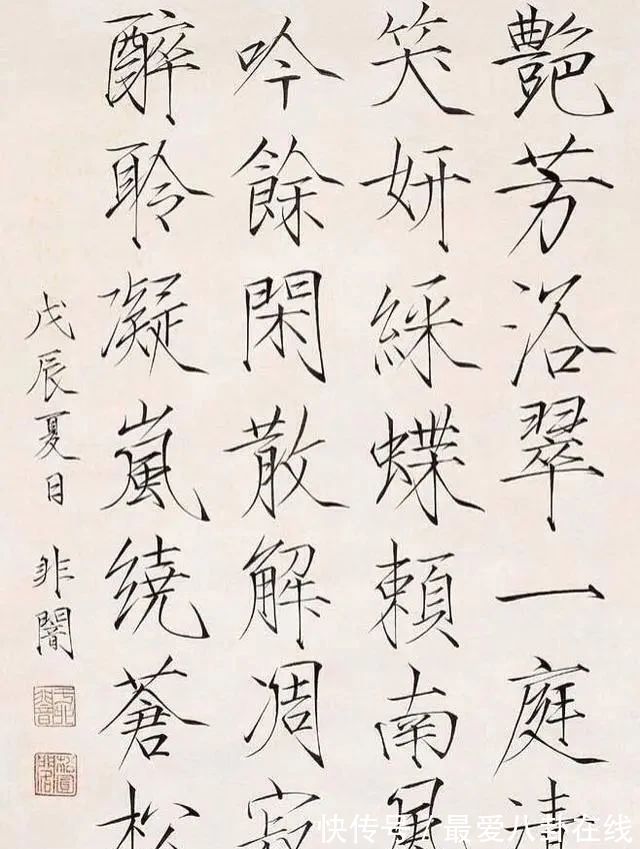 艷芳浴翠一庭清
笑妍綵蝶賴南風
吟餘閑散解凋寂
醉聆凝嵐繞蒼松
戊辰夏日 非闇
快传号/最爱八卦在线